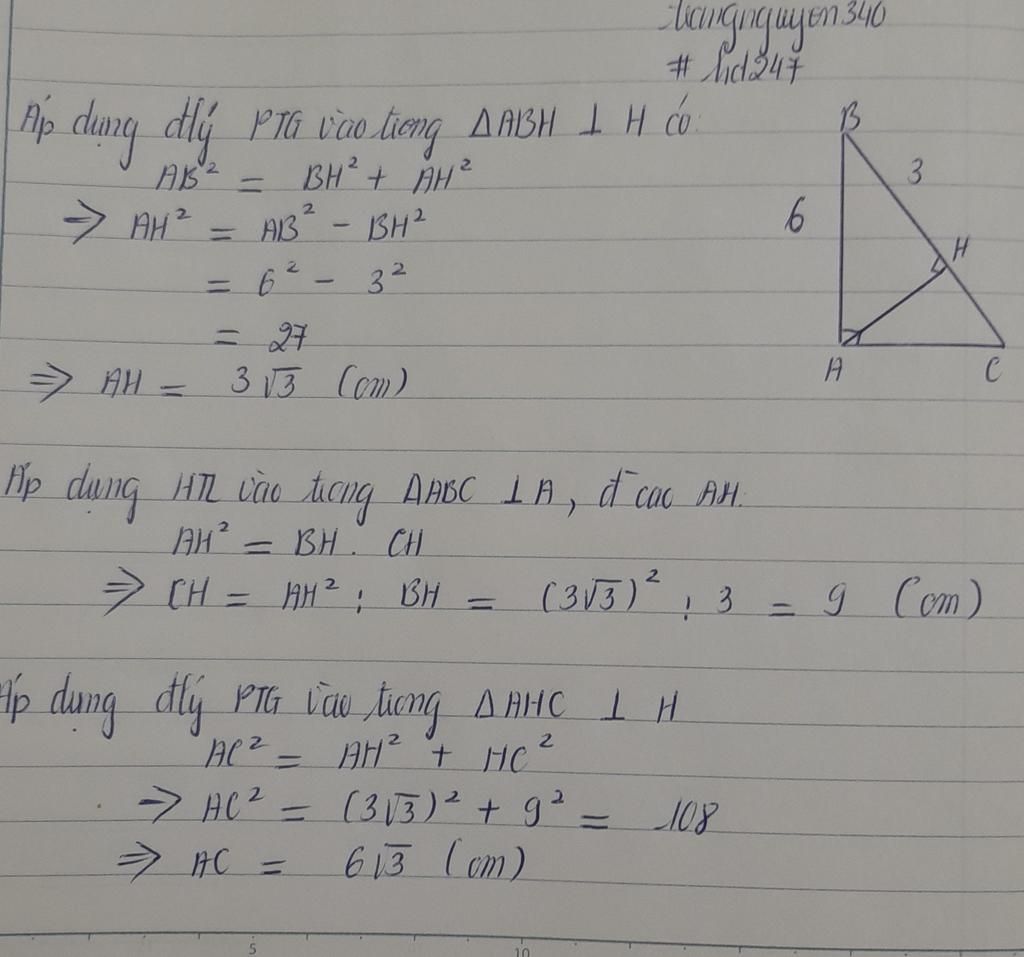 trangnguyen340
# hd247
Áp dụng đlý PTG vào trong ΔABH ⊥ H có:
AB² = BH² + AH²
⇒ AH² = AB² - BH²
= 6² - 3²
= 27
⇒ AH = 3√3 (cm)
B
3
6
H
A
C
Áp dụng HTL vào trong ΔABC ⊥ A, đ cao AH.
AH² = BH . CH
⇒ CH = AH² : BH = (3√3)² : 3 = 9 (cm)
Áp dụng đlý PTG vào trong ΔAHC ⊥ H
AC² = AH² + HC²
⇒ AC² = (3√3)² + 9² = 108
⇒ AC = 6√3 (cm)
5
10